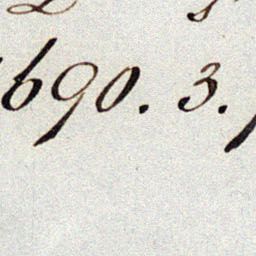 690. 3.